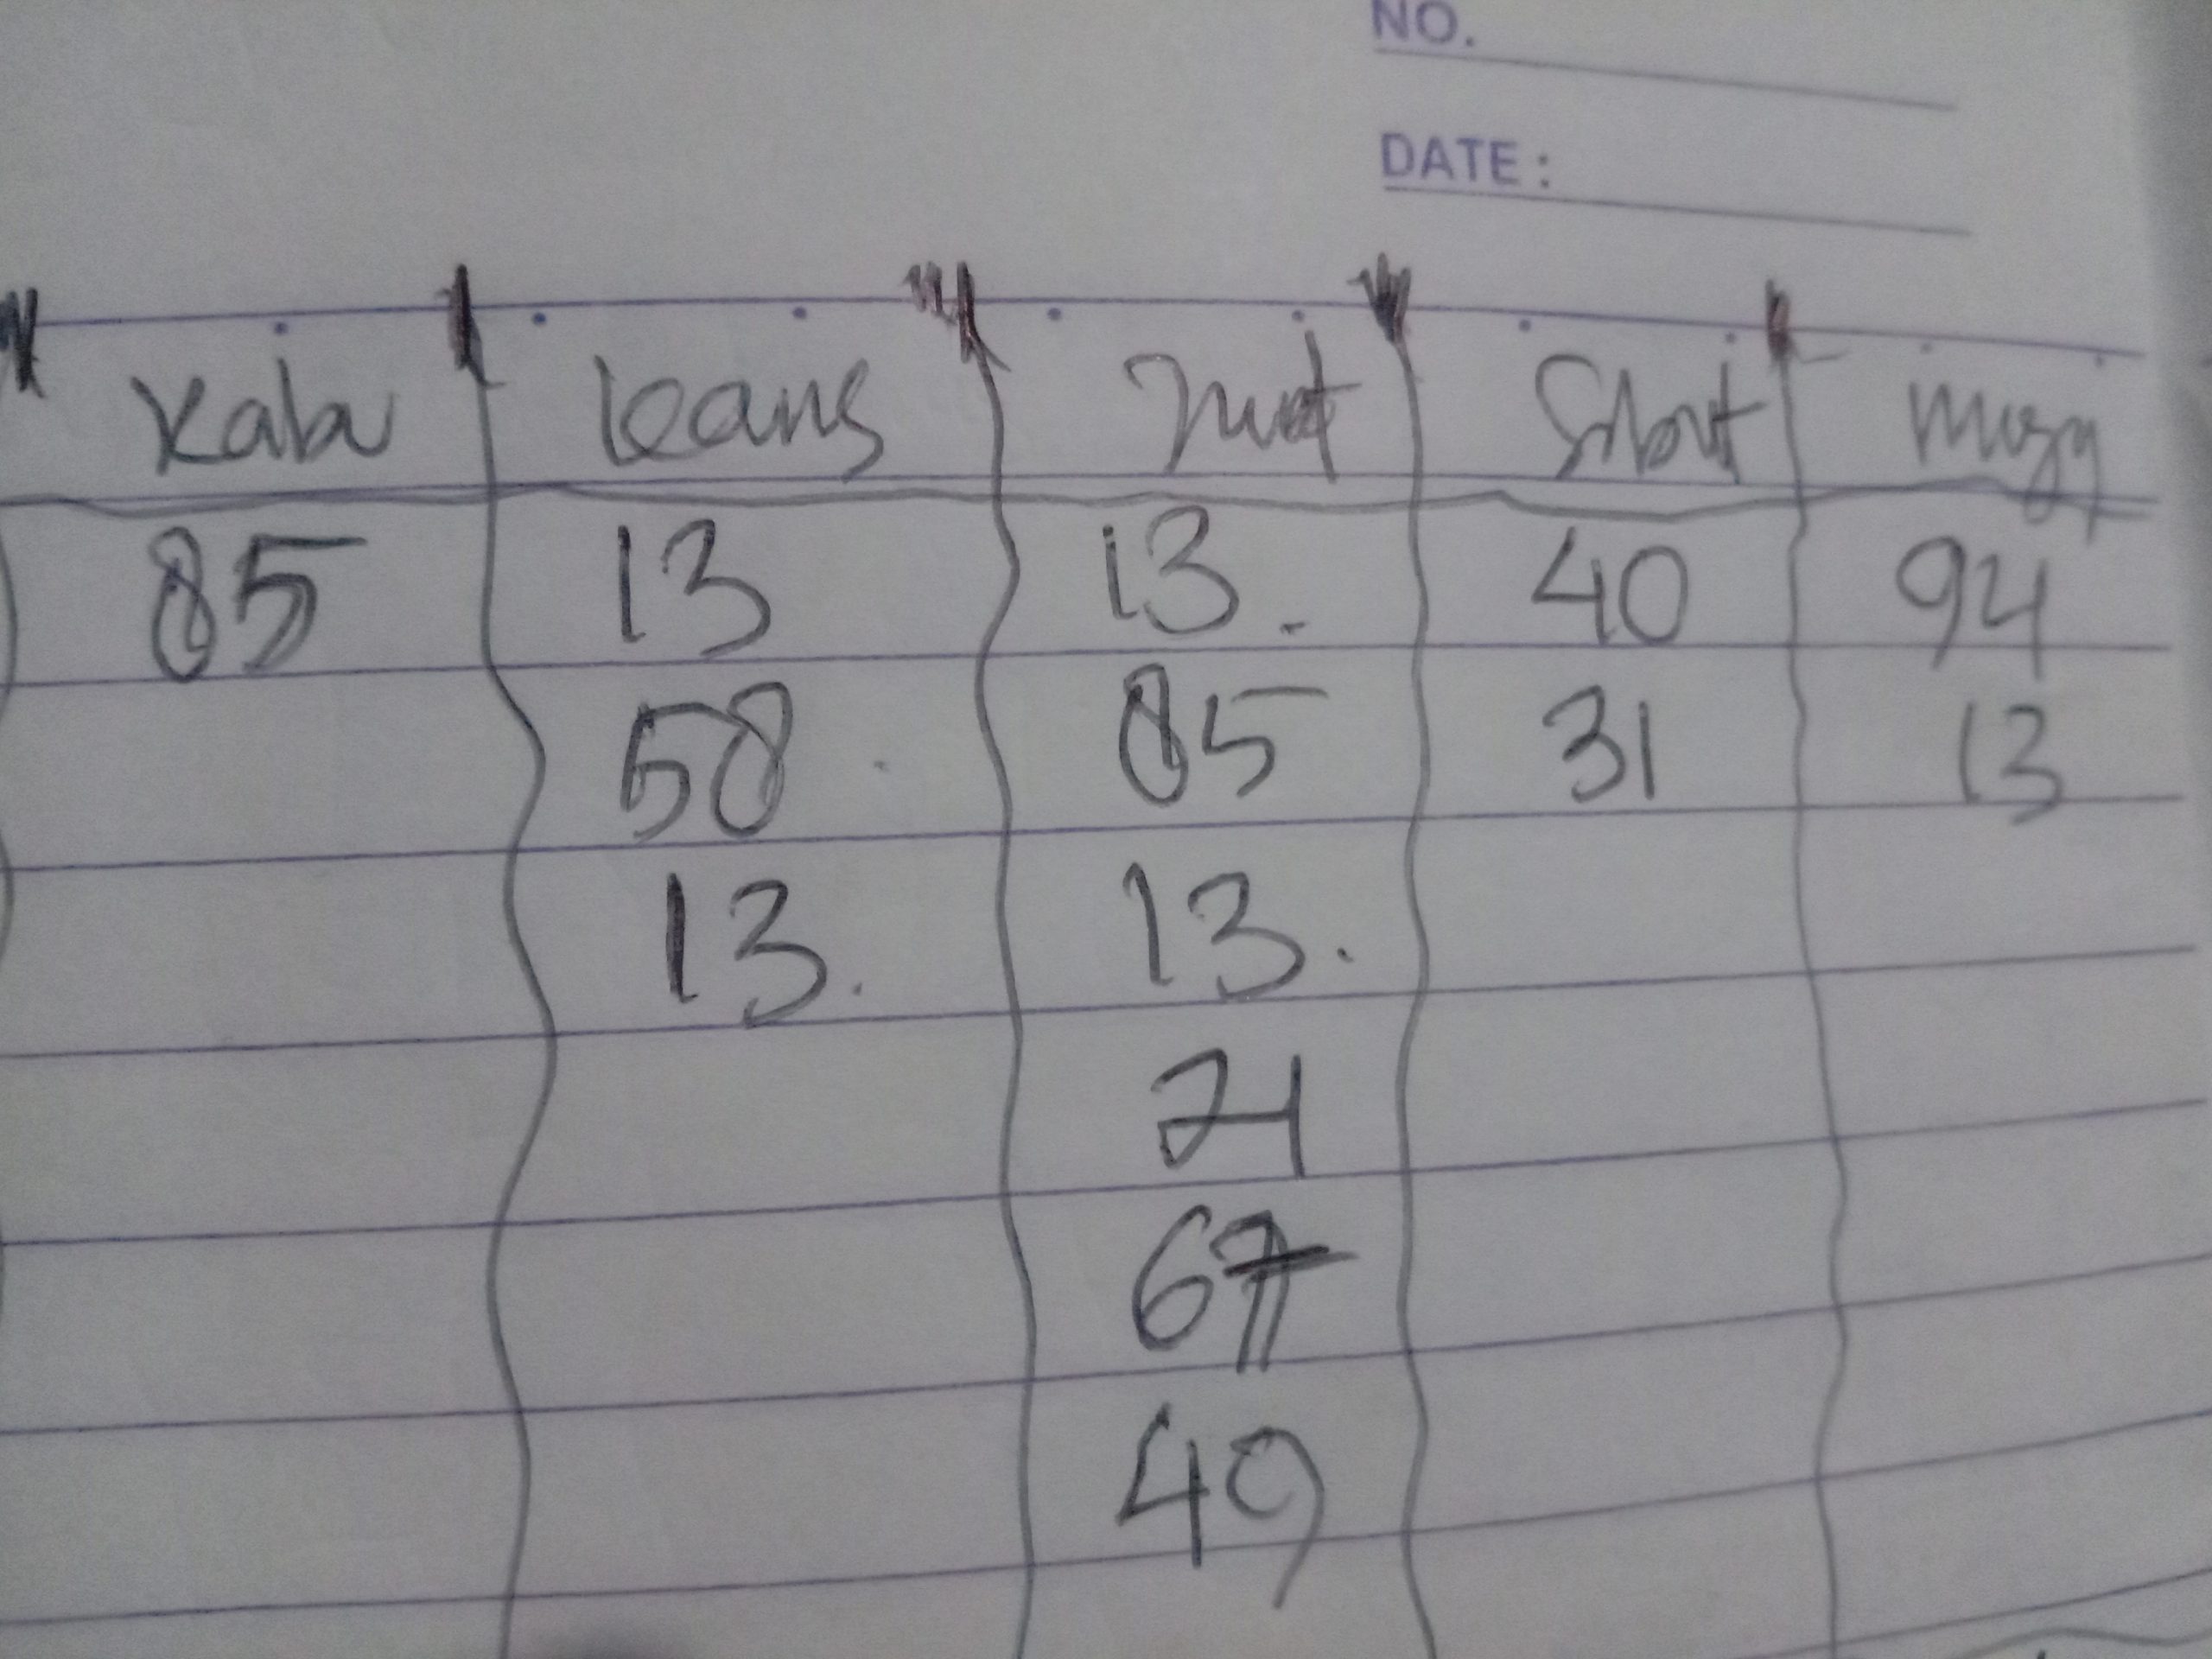 NO.
DATE :
Kabu keans Short
85 13 13. 40 94
58 85 31 13
13. 13.
21
67
49